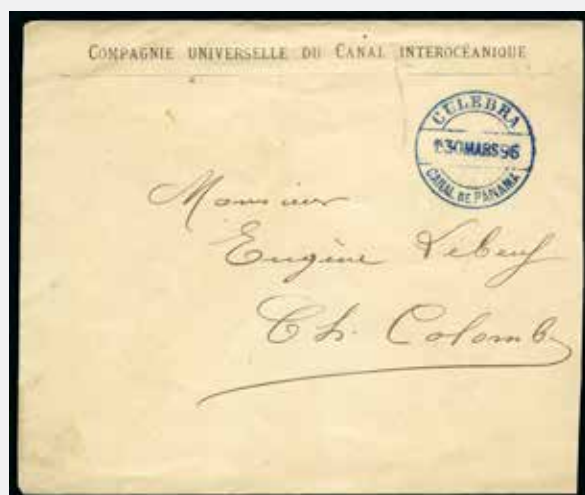 COMPAGNIE UNIVERSELLE DU CANAL INTEROCÉANIQUE
CULEBRA
30 MARS 96
CANAL DE PANAMA
Monsieur
Eugène Lebeuf
Ch. Colomb